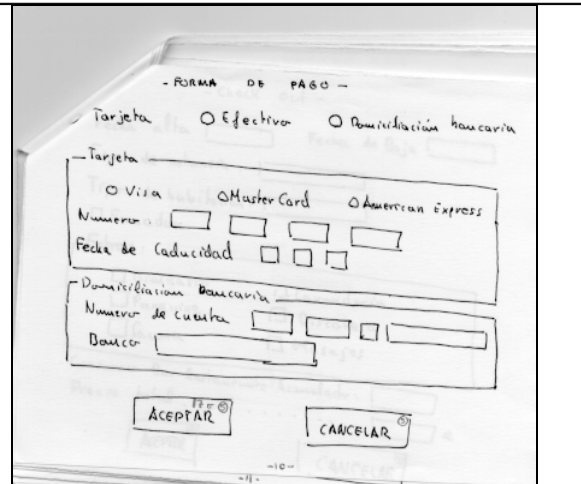 - FORMA DE PAGO -
Tarjeta Efectivo Domiciliación bancaria
Tarjeta
Visa MasterCard American Express
Numero
Fecha de Caducidad
Domiciliación Bancaria
Numero de cuenta
Banco
ACEPTAR CANCELAR
-10-
-11-